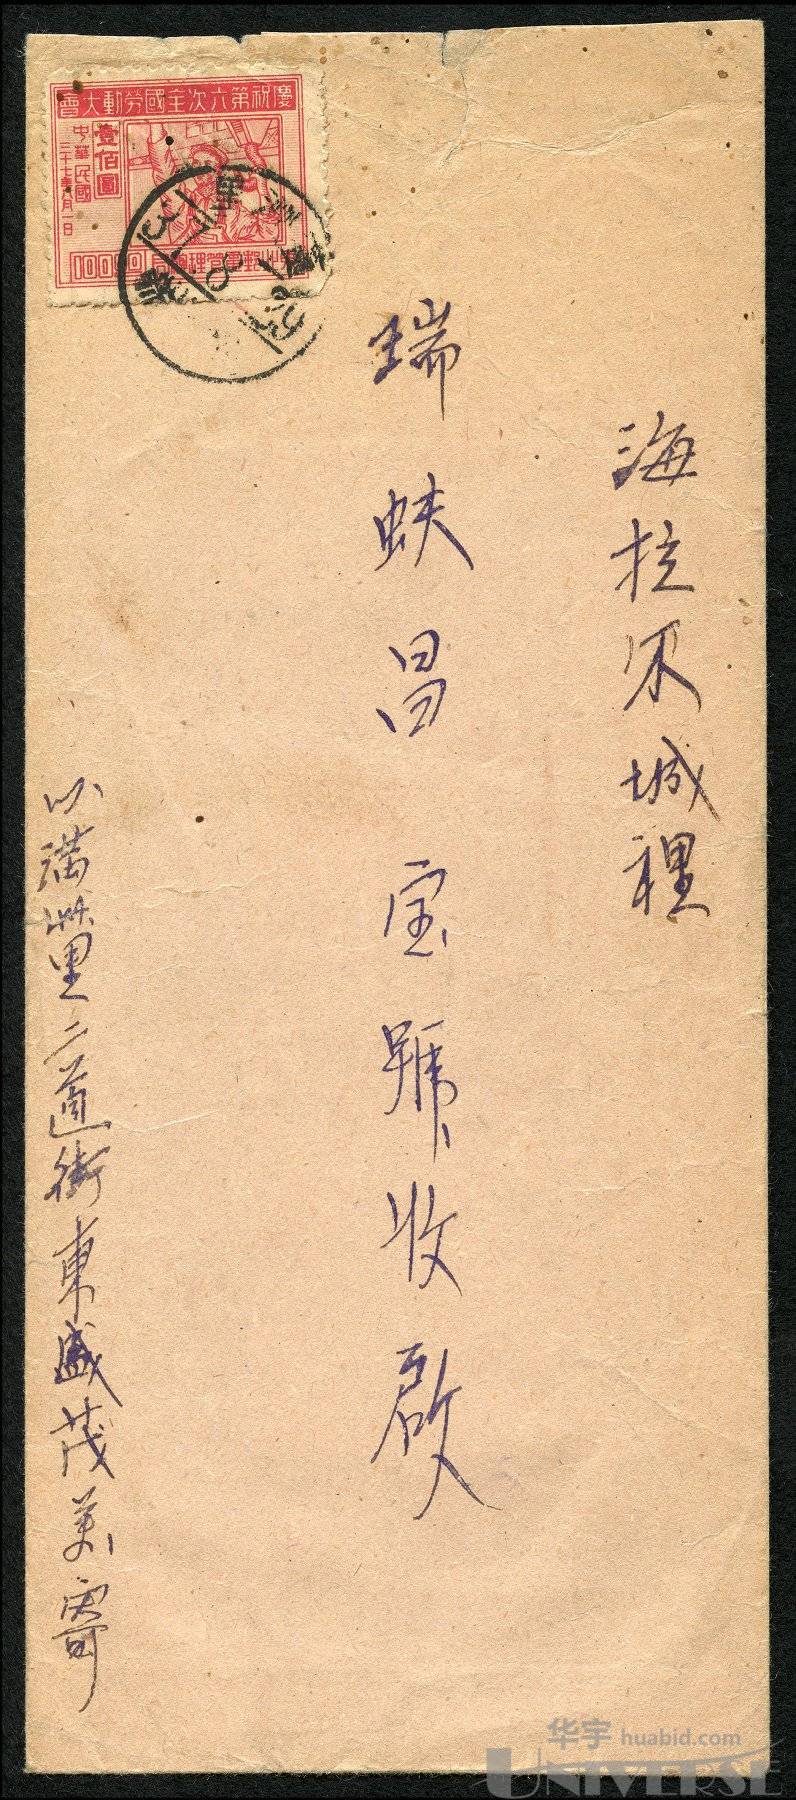 慶祝第六次全國勞動大會
壹佰圓
中華民國
三十七年八月一日
10000
海拉尔城裡
瑞蚨昌 宝號收啟
以满洲里二道街東盛茂美寄
华宇 huabid.com
UNIVERSE